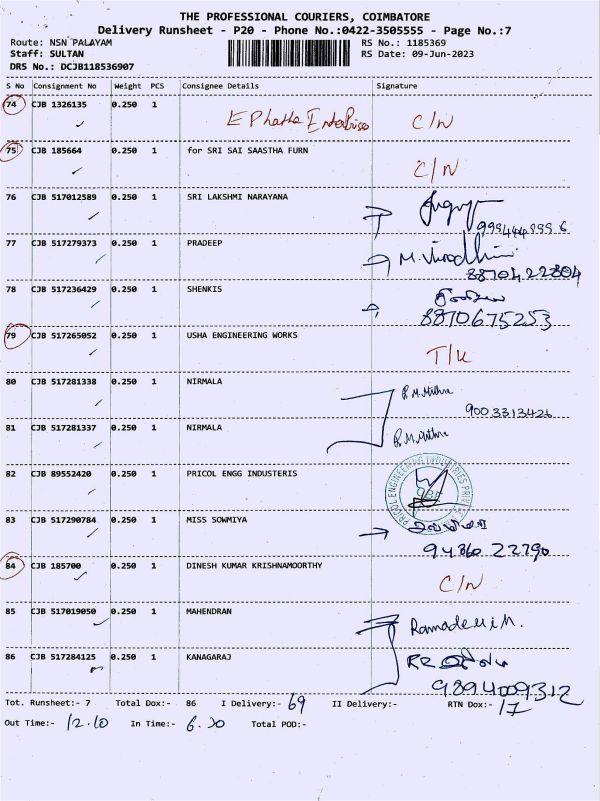 THE PROFESSIONAL COURIERS, COIMBATORE
Delivery Runsheet - P20 - Phone No.:0422-3505555 - Page No.:7
Route: NSN PALAYAM RS No.: 1185369
Staff: SULTAN RS Date: 09-Jun-2023
DRS No.: DCJB118536907
S No Consignment No Weight PCS Consignee Details Signature
74 CJB 1326135 0.250 1 C/N
75 CJB 185664 0.250 1 for SRI SAI SAASTHA FURN C/N
76 CJB 517012589 0.250 1 SRI LAKSHMI NARAYANA
77 CJB 517279373 0.250 1 PRADEEP
8870422804
78 CJB 517236429 0.250 1 SHENKIS
8870675253
79 CJB 517265052 0.250 1 USHA ENGINEERING WORKS
80 CJB 517281338 0.250 1 NIRMALA
9003313426
81 CJB 517281337 0.250 1 NIRMALA
82 CJB 89552420 0.250 1 PRICOL ENGG INDUSTERIS
83 CJB 517290784 0.250 1 MISS SOWMIYA
84 CJB 185700 0.250 1 DINESH KUMAR KRISHNAMOORTHY C/N
85 CJB 517019050 0.250 1 MAHENDRAN
86 CJB 517284125 0.250 1 KANAGARAJ
9894009312
Tot. Runsheet:- 7 Total Dox:- 86 I Delivery:- 69 II Delivery:- RTN Dox:- 17
Out Time:- 12.10 In Time:- 6.30 Total POD:-